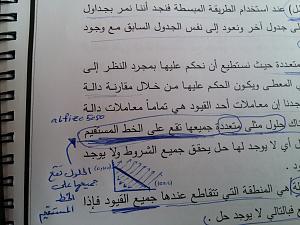 ل) عند استخدام الطريقة المبسطة فنجد أننا نمر بجداول
جدول آخر ونعود إلى نفس الجدول السابق مع وجود
متعددة حيث نستطيع أن نحكم عليها بمجرد النظر إلى
المعطى ويكون الحكم عليها من خلال مقارنة دالة
جدنا إن معاملات أحد القيود هي تماماً معاملات دالة
اك حلول مثلى متعددة جميعها تقع على الخط المستقيم
أي لا يوجد لها حل يحقق جميع الشروط ولا يوجد
الحلول تقع
جميعها على
الخط
المستقيم
هي المنطقة التي تتقاطع عندها جميع القيود فإذا
فبالتالي لا يوجد حل .